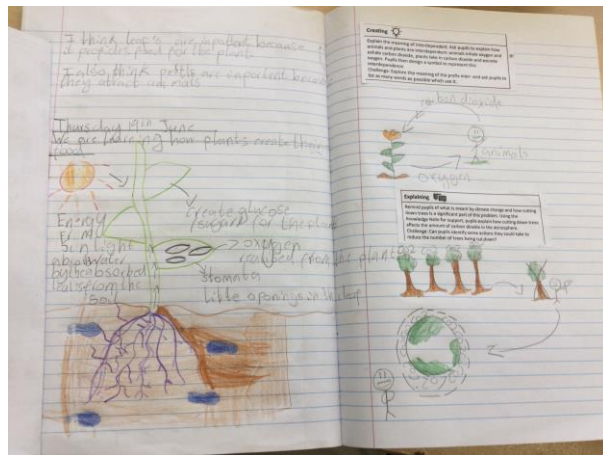 I think leafs are important because
it provides food for the plant
I also think petals are important because
they attract animals
Thursday 19th June
We are learning how plants create their
food
create glucose
(sugar) for the plant
Energy
from
Sun light
absorbed
by the
leafs
water
absorbed
from the
soil
oxygen
realised from the plant
Stomata
little openings in the leaf
Creating
Explain the meaning of interdependent. Ask pupils to explain how
animals and plants are interdependent: animals inhale oxygen and
exhale carbon dioxide, plants take in carbon dioxide and excrete
oxygen. Pupils then design a symbol to represent this
interdependence.
Challenge: Explore the meaning of the prefix inter- and ask pupils to
list as many words as possible which use it.
carbon dioxide
animals
oxygen
Explaining
Remind pupils of what is meant by climate change and how cutting
down trees is a significant part of this problem. Using the
Knowledge Note for support, pupils explain how cutting down trees
affects the amount of carbon dioxide in the atmosphere.
Challenge: Can pupils identify some actions they could take to
reduce the number of trees being cut down?